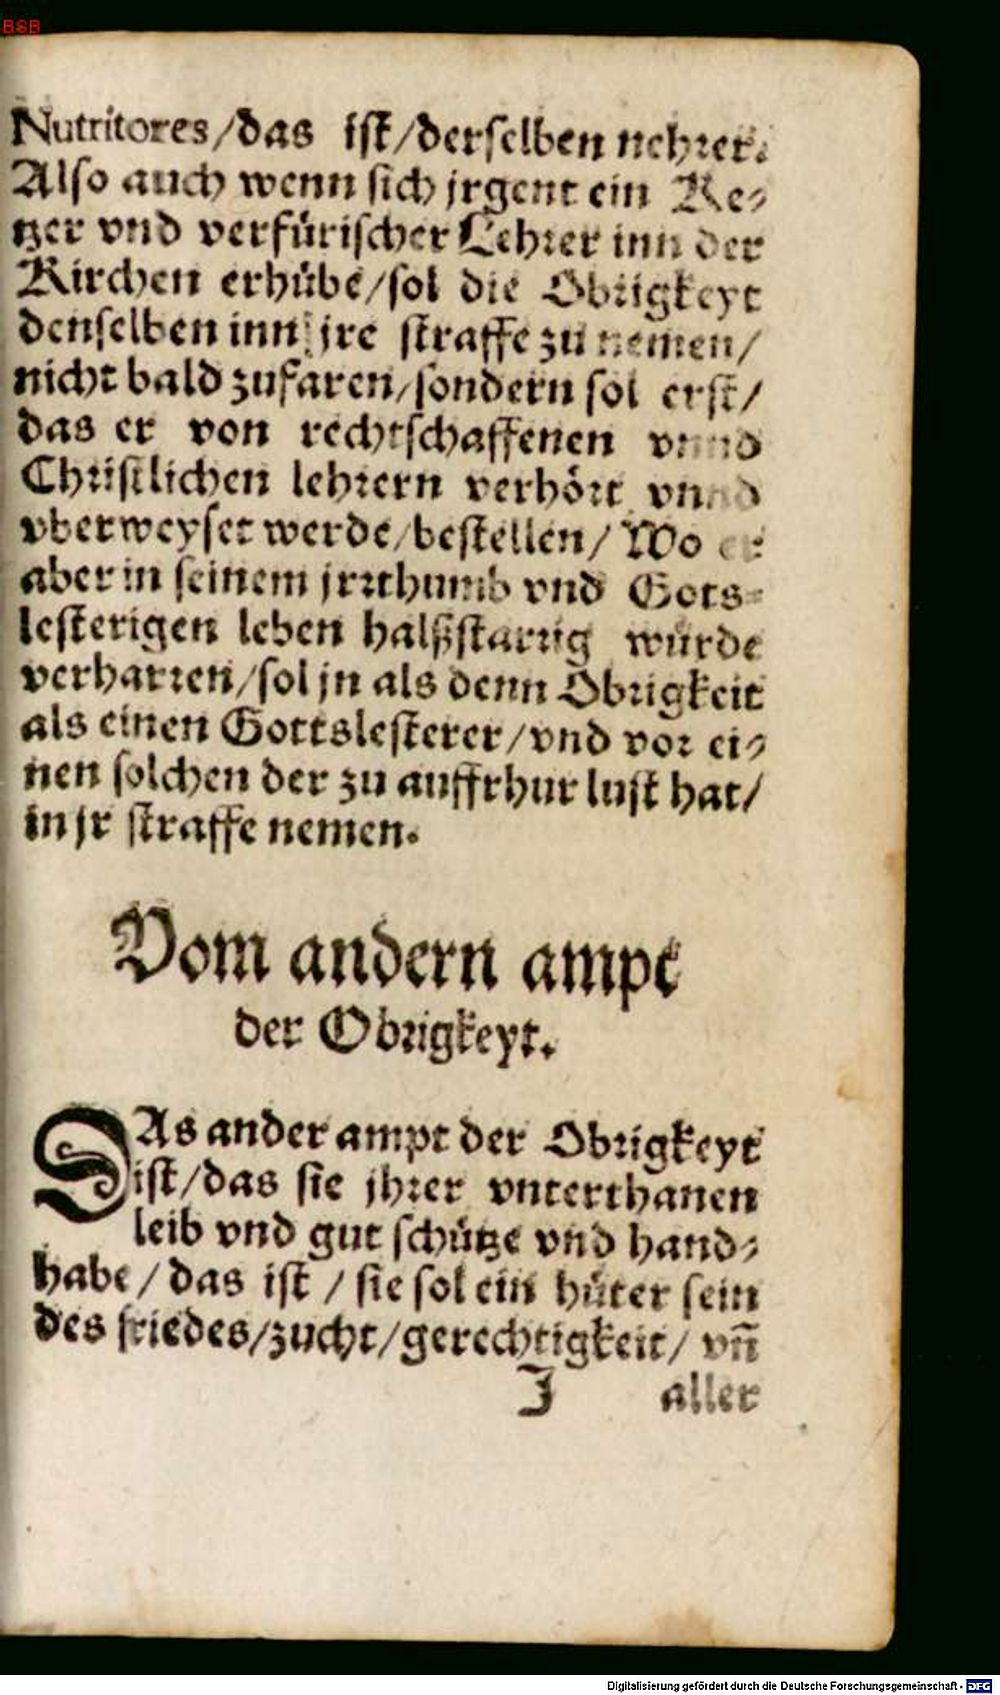 BSB
Nutritores/das ist/derselben nehrer.
Also auch wenn sich jrgent ein Ke-
tzer vnd verfürischer Lehrer inn der
Kirchen erhübe/sol die Obrigkeyt
denselben inn jre straffe zu nemen/
nicht bald zufaren/sondern sol erst/
das er von rechtschaffenen vnnd
Christlichen lehrern verhört vnnd
vberweyset werde/bestellen/Wo er
aber in seinem jrrthumb vnd Gots-
lesterigen leben halßstarrig würde
verharren/sol jn als denn Obrigkeit
als einen Gottslesterer/vnd vor ei-
nen solchen der zu auffrhur lust hat/
in jr straffe nemen.
Vom andern ampt
der Obrigkeyt.
DAs ander ampt der Obrigkeyt
ist/das sie jhrer vnterthanen
leib vnd gut schütze vnd hand-
habe/das ist/sie sol ein hüter sein
des friedes/zucht/gerechtigkeit/vñ
J aller
Digitalisierung gefördert durch die Deutsche Forschungsgemeinschaft - DFG